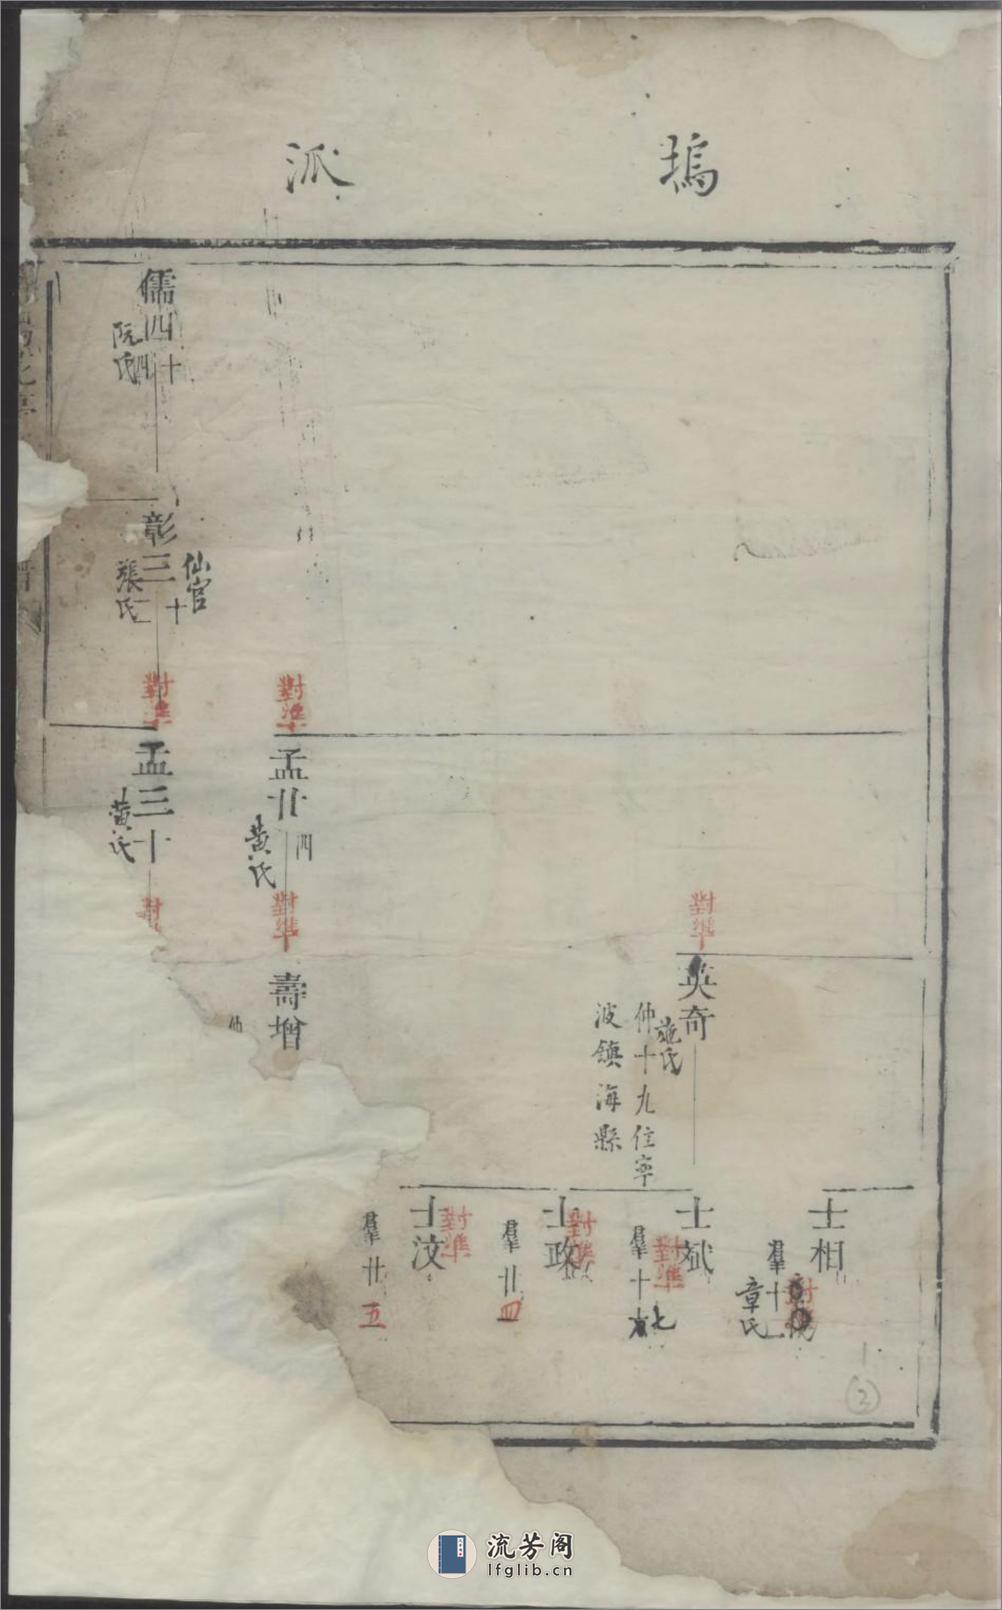 塢 派
士相
羣十一
章氏
對準
士斌
羣十七
對準
士政
羣廿四
對準
士汶
羣廿五
對準
英奇
施氏
仲十九住寧
波鎮海縣
對準
孟廿四
黄氏
對準
壽增
仲
對準
儒四十四
阮氏
彰三十二
仙官
張氏
對準
孟三十
黄氏
對
流芳阁
lfglib.cn
2